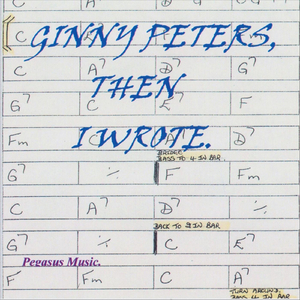 C A⁷
GINNY PETERS,
C A⁷ D⁷ G⁷
THEN
G⁷ C E⁷ F
I WROTE.
Fm C A⁷ D⁷
BRIDGE
BASS TO 4 IN BAR.
G⁷ ٪ F Fm
C A⁷ D⁷ ٪
BACK TO 2 IN BAR
G⁷ ٪ C E⁷
Pegasus Music.
F Fm C A⁷
TURN AROUND.
BASS 4 IN BAR